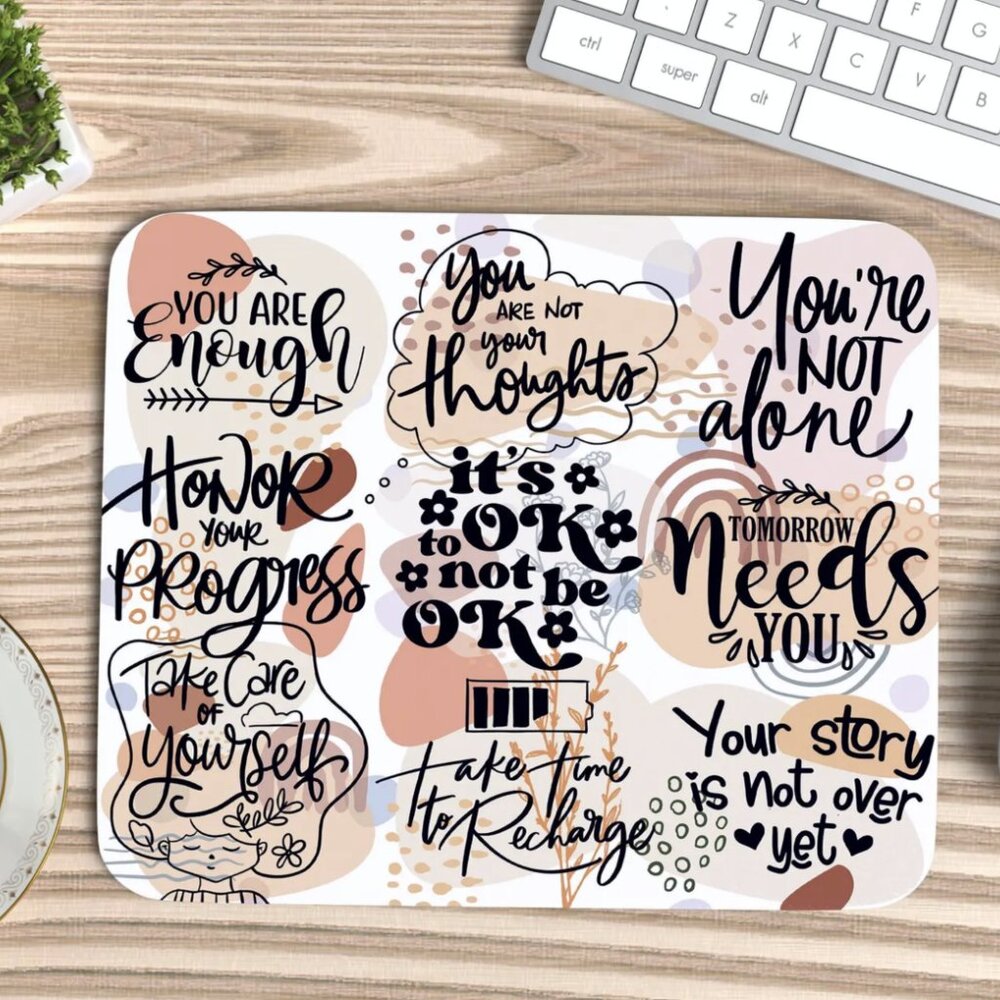 F
G
Z
X
C
V
B
ctrl
super
alt
YOU ARE
Enough
You
ARE NOT
your
thoughts
You're
NOT
alone
HoNoR
YouR
PRogress
it's
OK
to
not be
OK
TOMORROW
Needs
YOU
Take Care
OF
Yourself
take time
to Recharge
Your story
is not over
yet